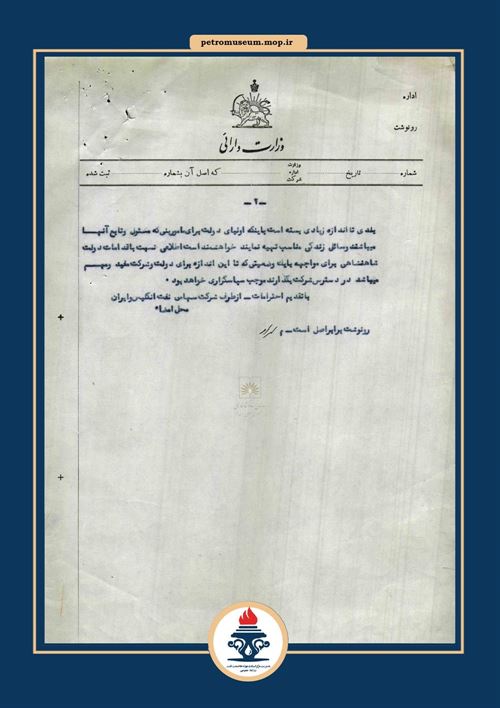 petromuseum.mop.ir
اداره
رونوشت
وزارت دارائی
شماره تاریخ وزارت اداره شرکت که اصل آن بشماره ثبت شده
-۲-
بلدی تا اندازه زیادی بسته است باینکه اولیای دولت برای مامورینی که مسئول وتابع آنها
میباشند وسائل زندگی مناسب تهیه نمایند خواهشمند است اطلاعی نسبت باقدامات دولت
شاهنشاهی برای مواجهه باینکه وضعیتی که تا این اندازه برای دولت وشرکت مفید ومهم
میباشد در دسترس شرکت بگذارند موجب سپاسگزاری خواهد بود .
باتقدیم احترامات - ازطرف شرکت سهامی نفت انگلیس وایران
محل امضاء
رونوشت برابر اصل است -